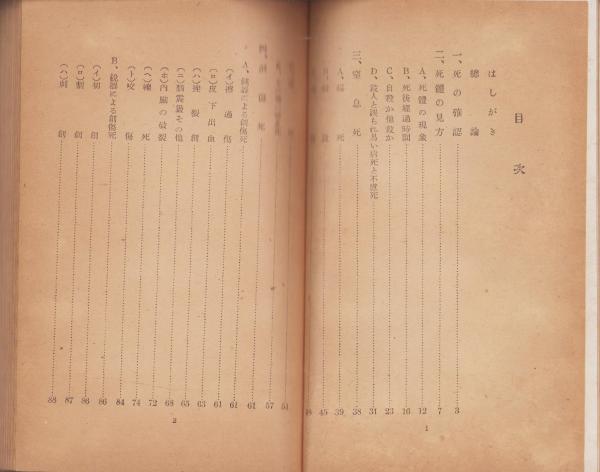 目次
はしがき
總論
一、死の確認 3
二、死體の見方 7
A、死體の現象 12
B、死後經過時間 16
C、自殺か他殺か 23
D、殺人と誤られ易い病死と不慮死 31
三、窒息死 38
A、縊死 39
45
1
51
57
創傷死 61
A、鈍器による創傷死 61
(イ)擦過傷 61
(ロ)皮下出血 61
(ハ)挫裂創 63
(ニ)腦震盪その他 65
(ホ)內臟の破裂 68
(ヘ)轢死 72
(ト)咬傷 74
B、銳器による創傷死 84
(イ)切創 86
(ロ)割創 86
(ハ)刺創 87
88
2